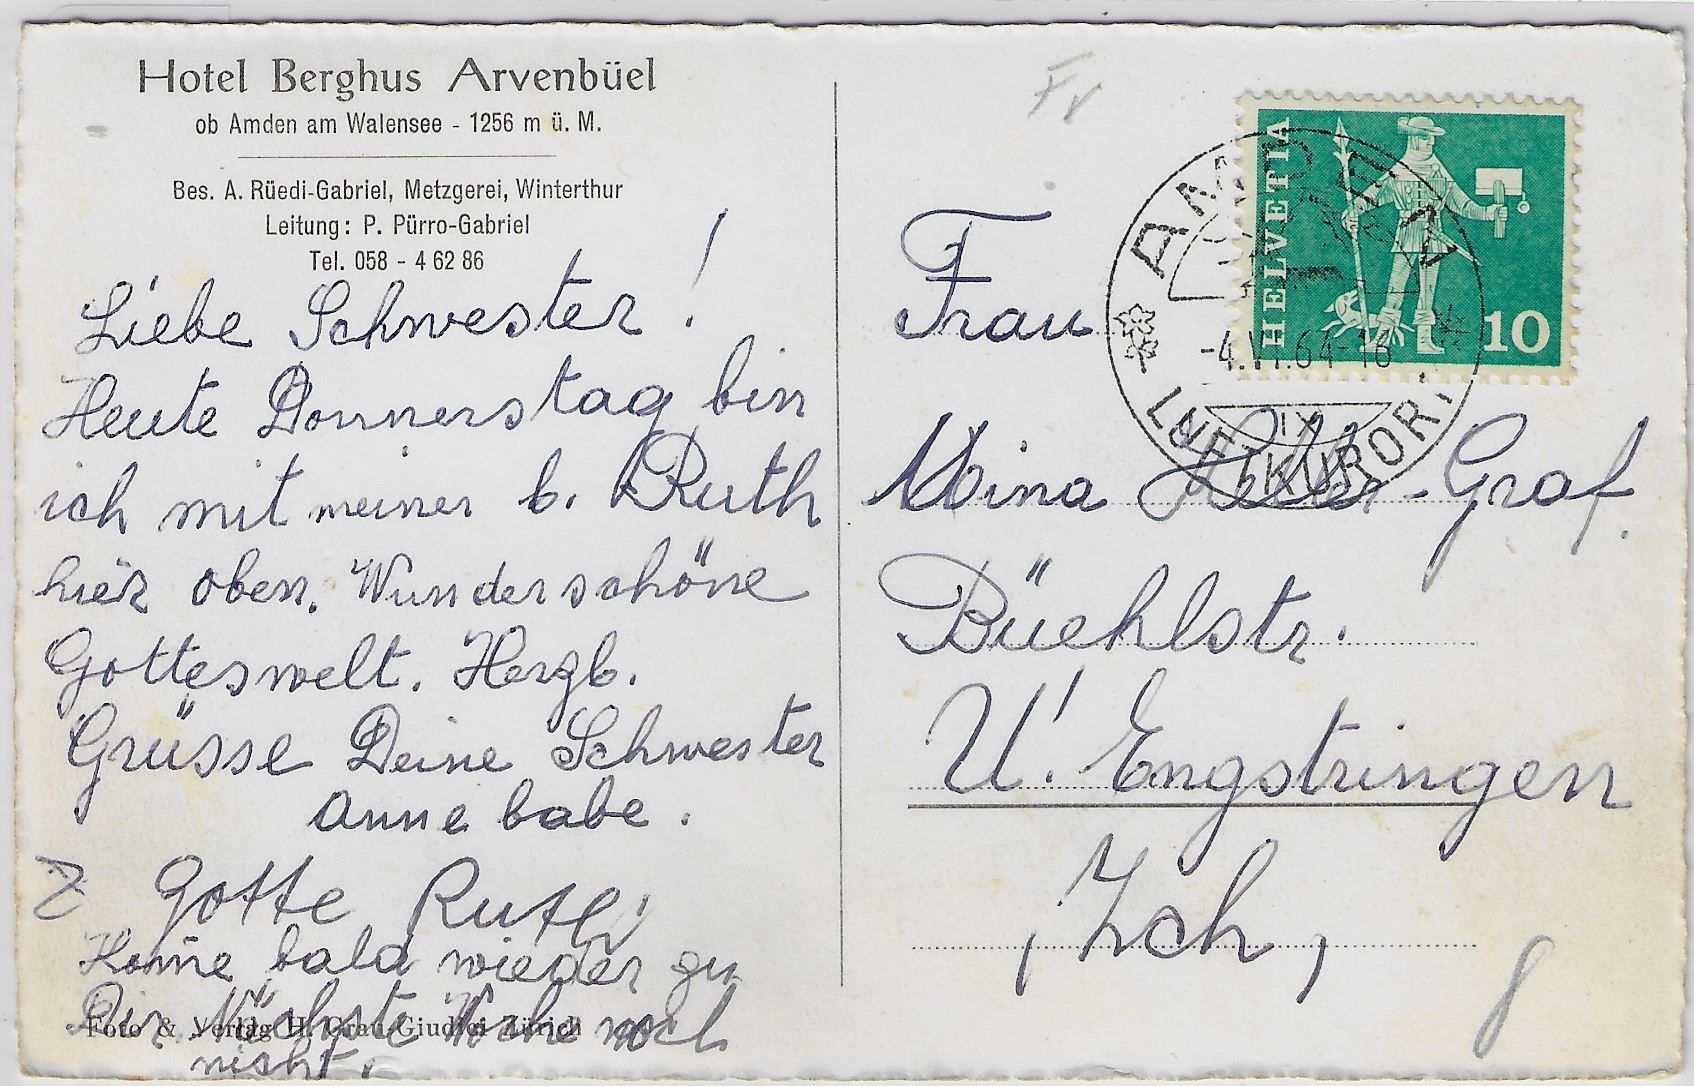 Hotel Berghus Arvenbüel
ob Amden am Walensee - 1256 m ü. M.
Bes. A. Rüedi-Gabriel, Metzgerei, Winterthur
Leitung: P. Pürro-Gabriel
Tel. 058 - 4 62 86
Liebe Schwester!
Heute Donnerstag bin
ich mit meiner b. Ruth
hier oben. Wunderschöne
Gotteswelt. Herzl.
Grüsse Deine Schwester
Annebabe.
Gotte Ruth
Kome bald wieder zu
Dir. Nächste Woche noch
nicht.
Foto & Verlag H. Grau-Giudici Zürich
Fr
HELVETIA
10
AMDEN
-4.VI.64-18
LUFTKURORT
Frau
Mina Heller-Graf.
Büehlstr.
U. Engstringen
Zch